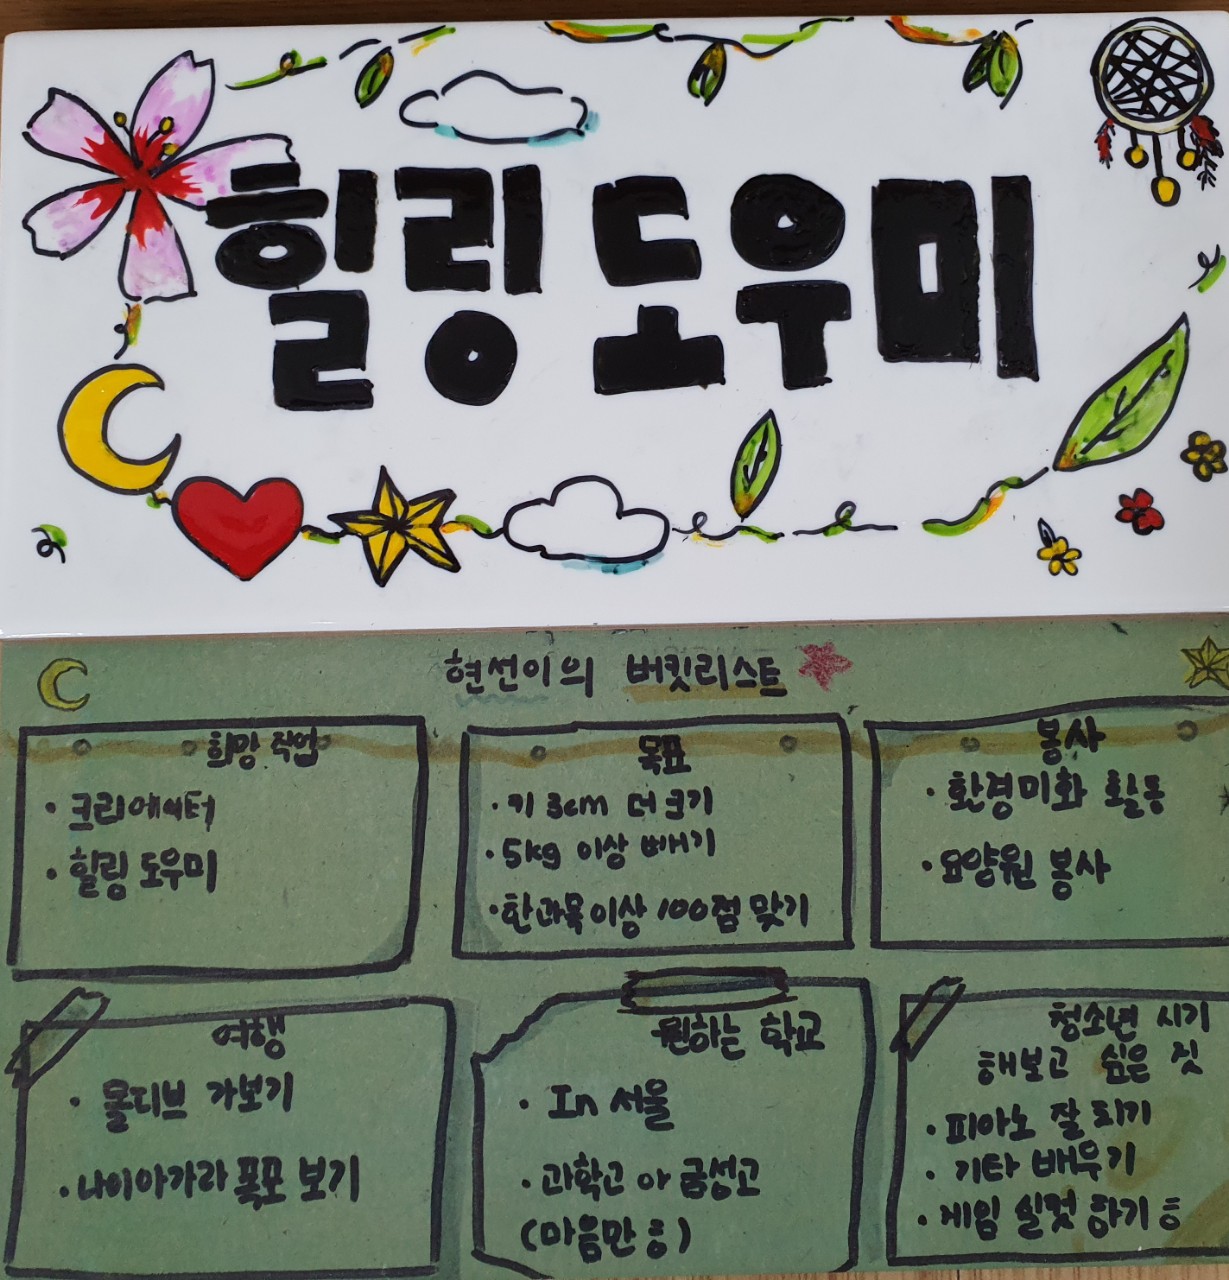 힐링 도우미
현선이의 버킷리스트
희망 직업
· 크리에이터
· 힐링 도우미
목표
· 키 3cm 더 크기
· 5kg 이상 빼기
· 한과목이상 100점 맞기
봉사
· 환경미화 활동
· 요양원 봉사
여행
· 몰디브 가보기
· 나이아가라 폭포 보기
원하는 학교
· In 서울
· 과학고 아 금성고
(마음만 ㅎ)
청소년 시기
해보고 싶은 짓
· 피아노 잘 치기
· 기타 배우기
· 게임 실컷 하기 ㅎ